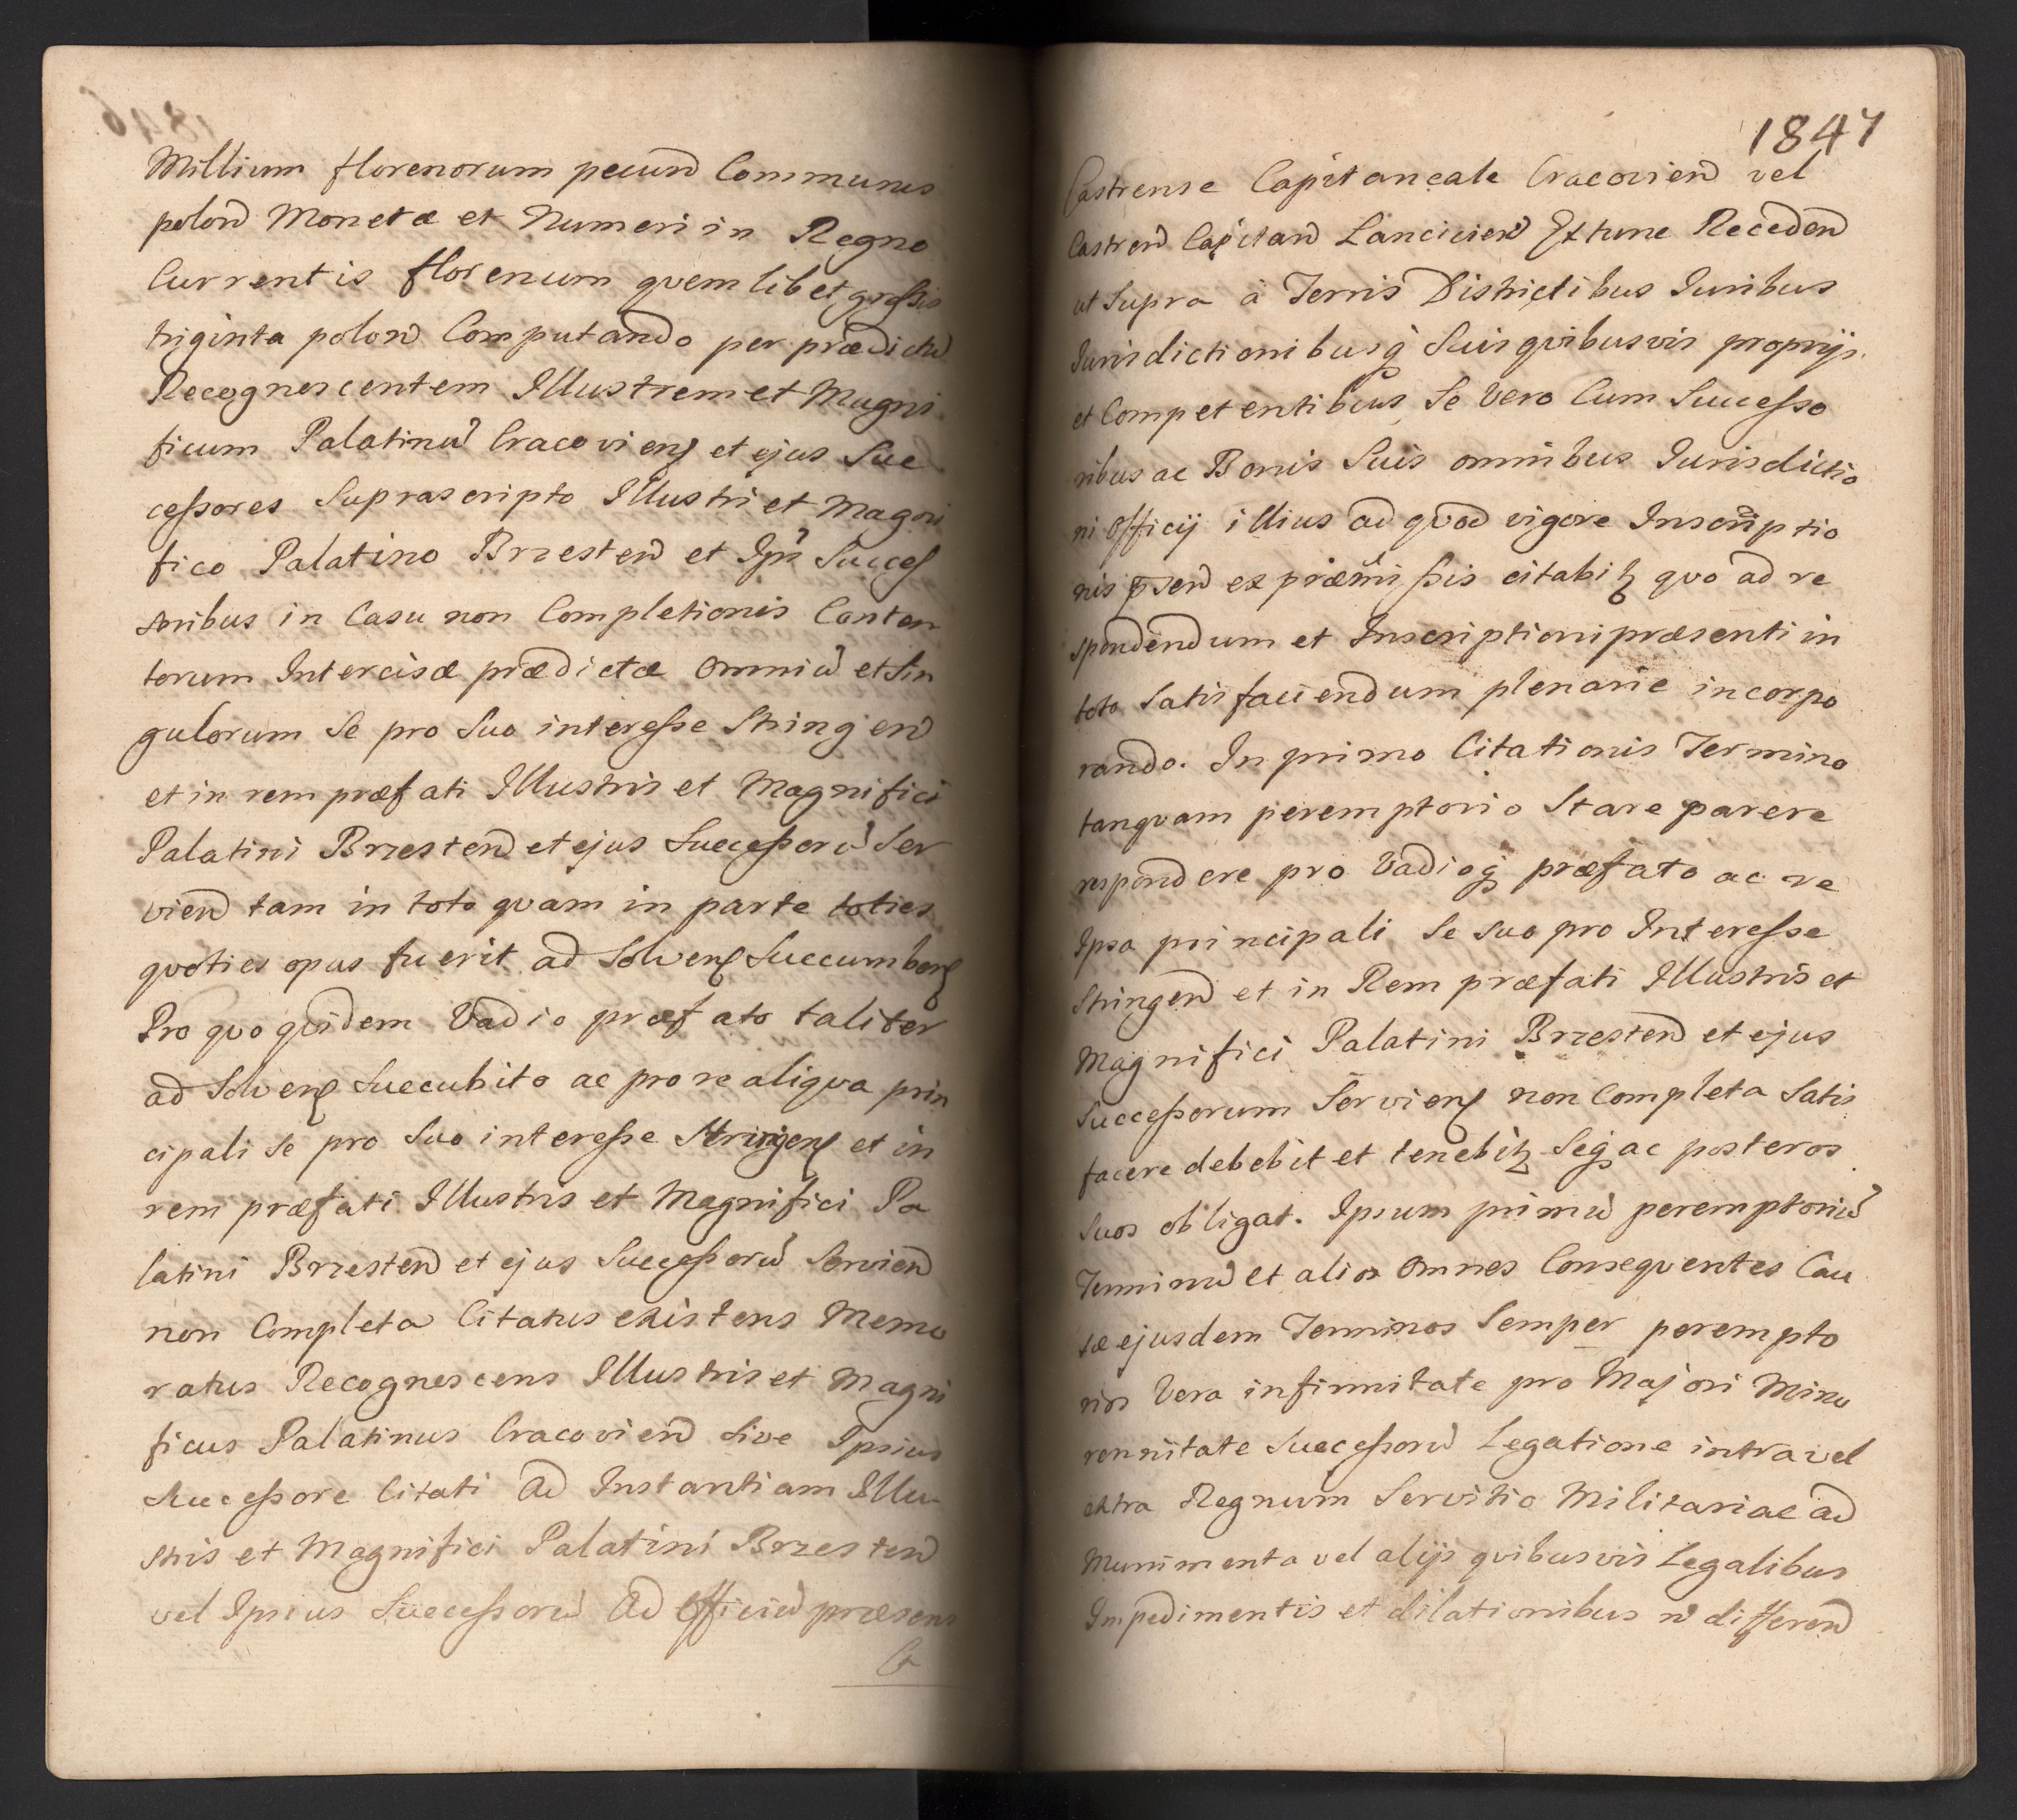 Millium florenorum pecund Communis
polond Monetæ et Numeri in Regno
Currentis florenum quemlibet grossis
triginta polond Computando per prædictũ
Recognoscentem Illustrem et Magni
ficum Palatinũ Cracoviens et ejus Suc
cessores Suprascripto Illustri et Magni
fico Palatino Brzestend et Ipsi Success
soribus in Casu non Completionis Conten
torum Intercisæ prædictæ omniũ et Sin
gulorum Se pro Suo interesse Stringend
et in rem præfati Illustris et Magnifici
Palatini Brzestend et ejus Successorũ Ser
viend tam in toto quam in parte toties
quoties opus fuerit ad Solvens Succumbens
Pro quo quidem Vadio præfato taliter
ad Solvens Succubito ac pro re aliqua prin
cipali Se pro Suo interesse Stringens et in
rem præfati Illustris et Magnifici Pa
latini Brzestend et ejus Successorũ Serviend
non Completa Citatus existens Memo
ratus Recognoscens Illustris et Magni
ficus Palatinus Cracoviend Sive Ipsius
Successore Citati Ad Instantiam Illu-
stris et Magnifici Palatini Brzestend
vel Ipsius Successorũ Ad Officiũ præsens
Ca
1847
Castrense Capitaneale Cracoviend vel
Castrend Capitand Lanciciend Ex tunc Recedend
ut Supra à Terris Districtibus Iuribus
Iurisdictionibusq̃ Suis quibusvis proprijs
et Competentibus Se Vero Cum Successo
ribus ac Bonis Suis omnibus Iurisdictio
ni Officij illius ad quod vigore Inscriptio
nis p̃send ex præmissis citabitz quo ad re
spondendum et Inscriptioni præsenti in
toto Satisfaciendum plenarie incorpo
rando. In primo Citationis Termino
tanquam peremptorio Stare parere
respondere pro Vadioq̃ præfato ac re
Ipsa principali Se suo pro Interesse
Stringend et in Rem præfati Illustris et
Magnifici Palatini Brzestend et ejus
Successorum Serviens non Completa Satis
facere debebit et tenebitz Seq̃ ac posteros
Suos obligat. Ipsum primũ peremptoriũ
Terminũ et alios Omnes Consequentes Cau
sæ ejusdem Terminos Semper perempto
rios Vera infirmitate pro Majori Mino
rennitate Successorũ Legatione intra vel
extra Regnum Servitio Militari ac ad
Munimenta vel alijs quibusvis Legalibus
Impedimentis et dilationibus ñ differend